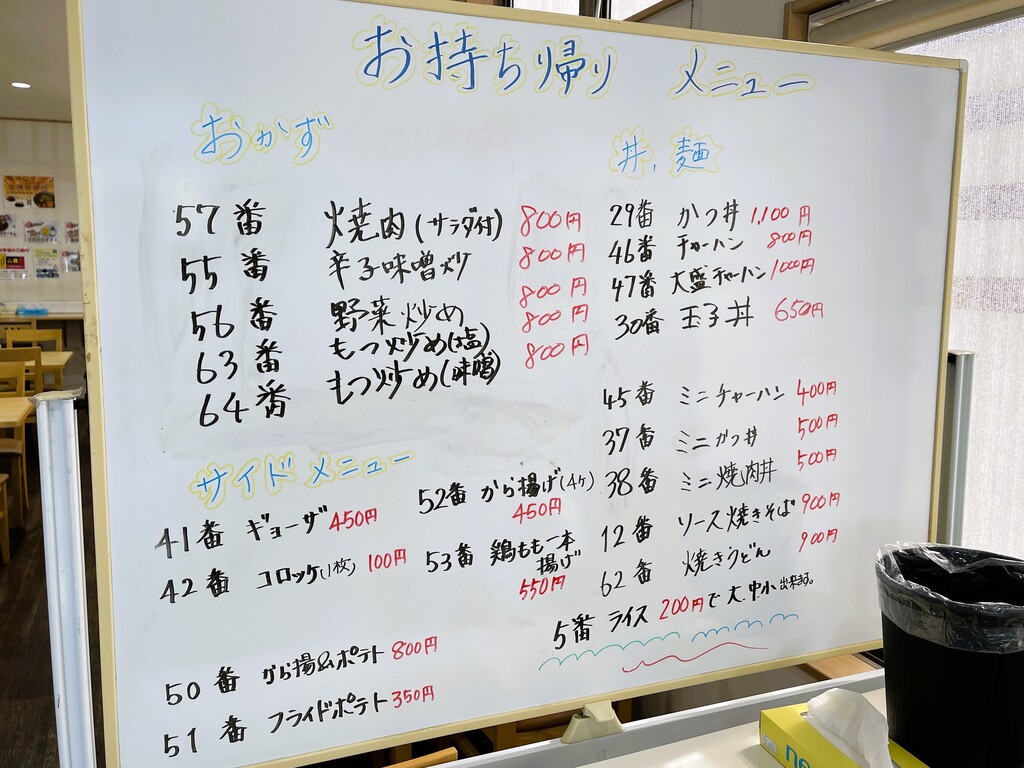 お持ち帰り メニュー
おかず
57番 焼肉(サラダ付) 800円
55番 辛子味噌 800円
56番 野菜炒め 800円
63番 もつ炒め(塩) 800円
64番 もつ炒め(味噌) 800円
サイドメニュー
41番 ギョーザ 450円
42番 コロッケ(1枚) 100円
52番 から揚げ(4ケ)
450円
53番 鶏もも一本
揚げ
550円
50番 から揚&ポテト 800円
51番 フライドポテト 350円
丼、麺
29番 かつ丼 1,100円
46番 チャーハン 800円
47番 大盛チャーハン 1000円
30番 玉子丼 650円
45番 ミニチャーハン 400円
37番 ミニかつ丼 500円
38番 ミニ焼肉丼 500円
12番 ソース焼きそば 900円
62番 焼きうどん 900円
5番 ライス 200円で大、中、小、出来ます。
ne